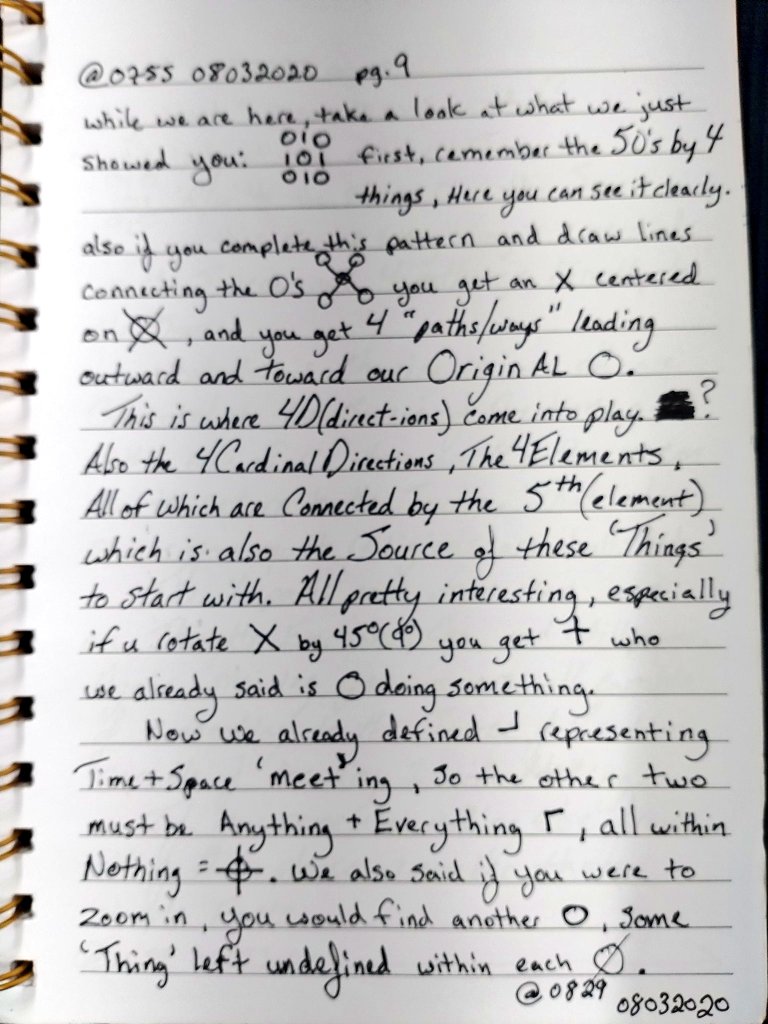 @0755 08032020 pg.9
while we are here, take a look at what we just
010
showed you: 101 first, remember the 50's by 4
010
things, Here you can see it clearly.
also if you complete this pattern and draw lines
connecting the O's you get an X centered
on, and you get 4 "paths/ways" leading
outward and toward our OriginAL O.
This is where 4D(direct-ions) come into play. ?
Also the 4 Cardinal Directions, The 4 Elements,
All of which are Connected by the 5th (element)
which is also the Source of these 'Things'
to start with. All pretty interesting, especially
if u rotate X by 45° you get + who
we already said is O doing something.
Now we already defined ┘ representing
Time + Space 'meet'ing, So the other two
must be Anything + Everything ┌, all within
Nothing = ⌖. We also said if you were to
zoom in, you would find another O, Some
'Thing' left undefined within each Ø.
@0829 08032020